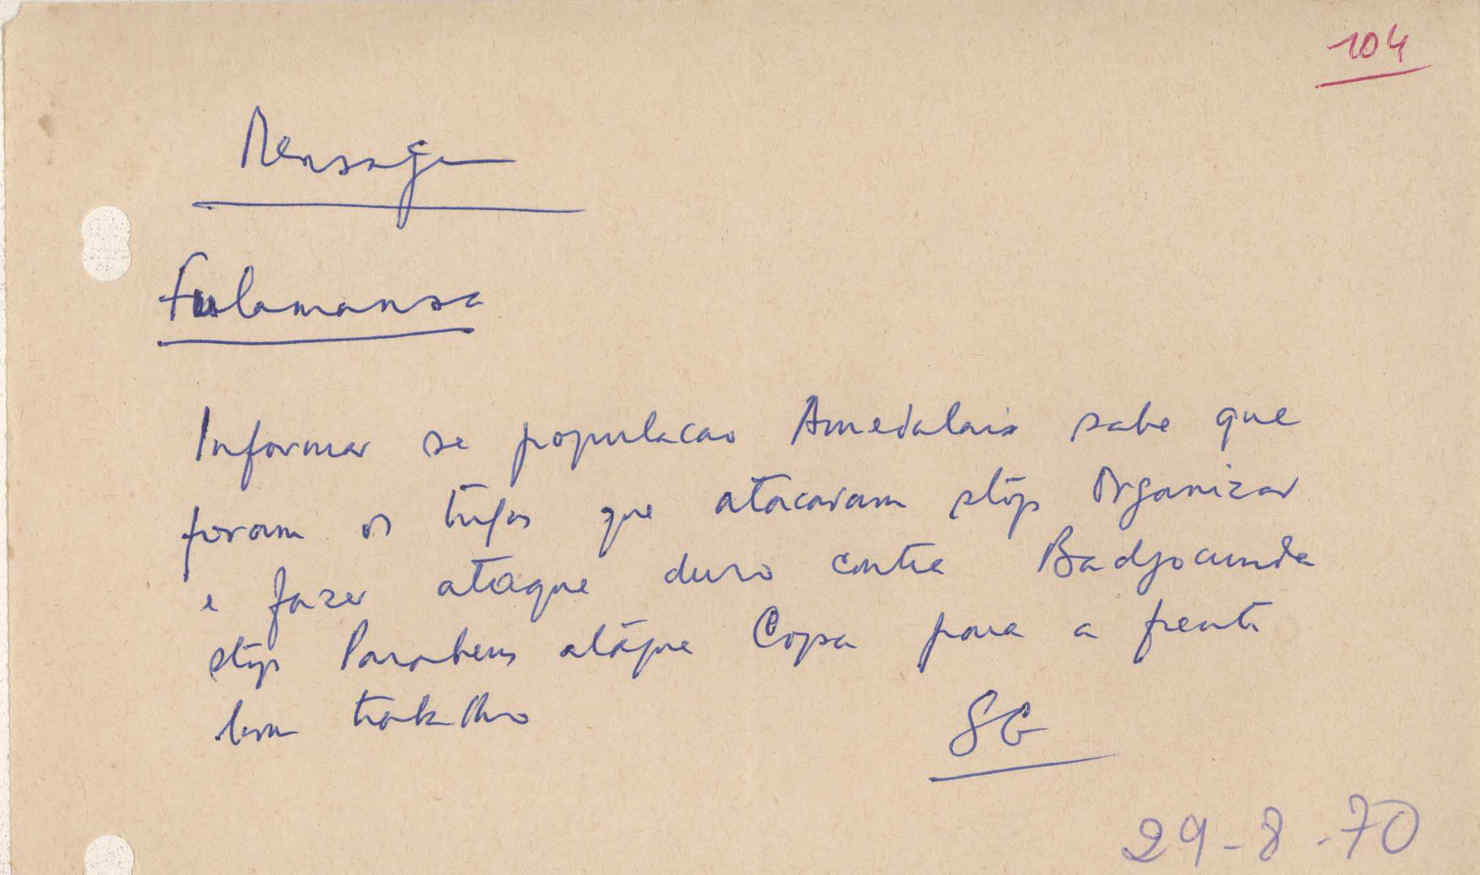 104
Mensagem
Fulamansa
Informar se populacao Amedalais sabe que
foram os tugas que atacaram stop Organizar
e fazer ataque duro contra Badjocunda
stop Parabens ataque Copa para a frente
bom trabalho
SG
29-8-70